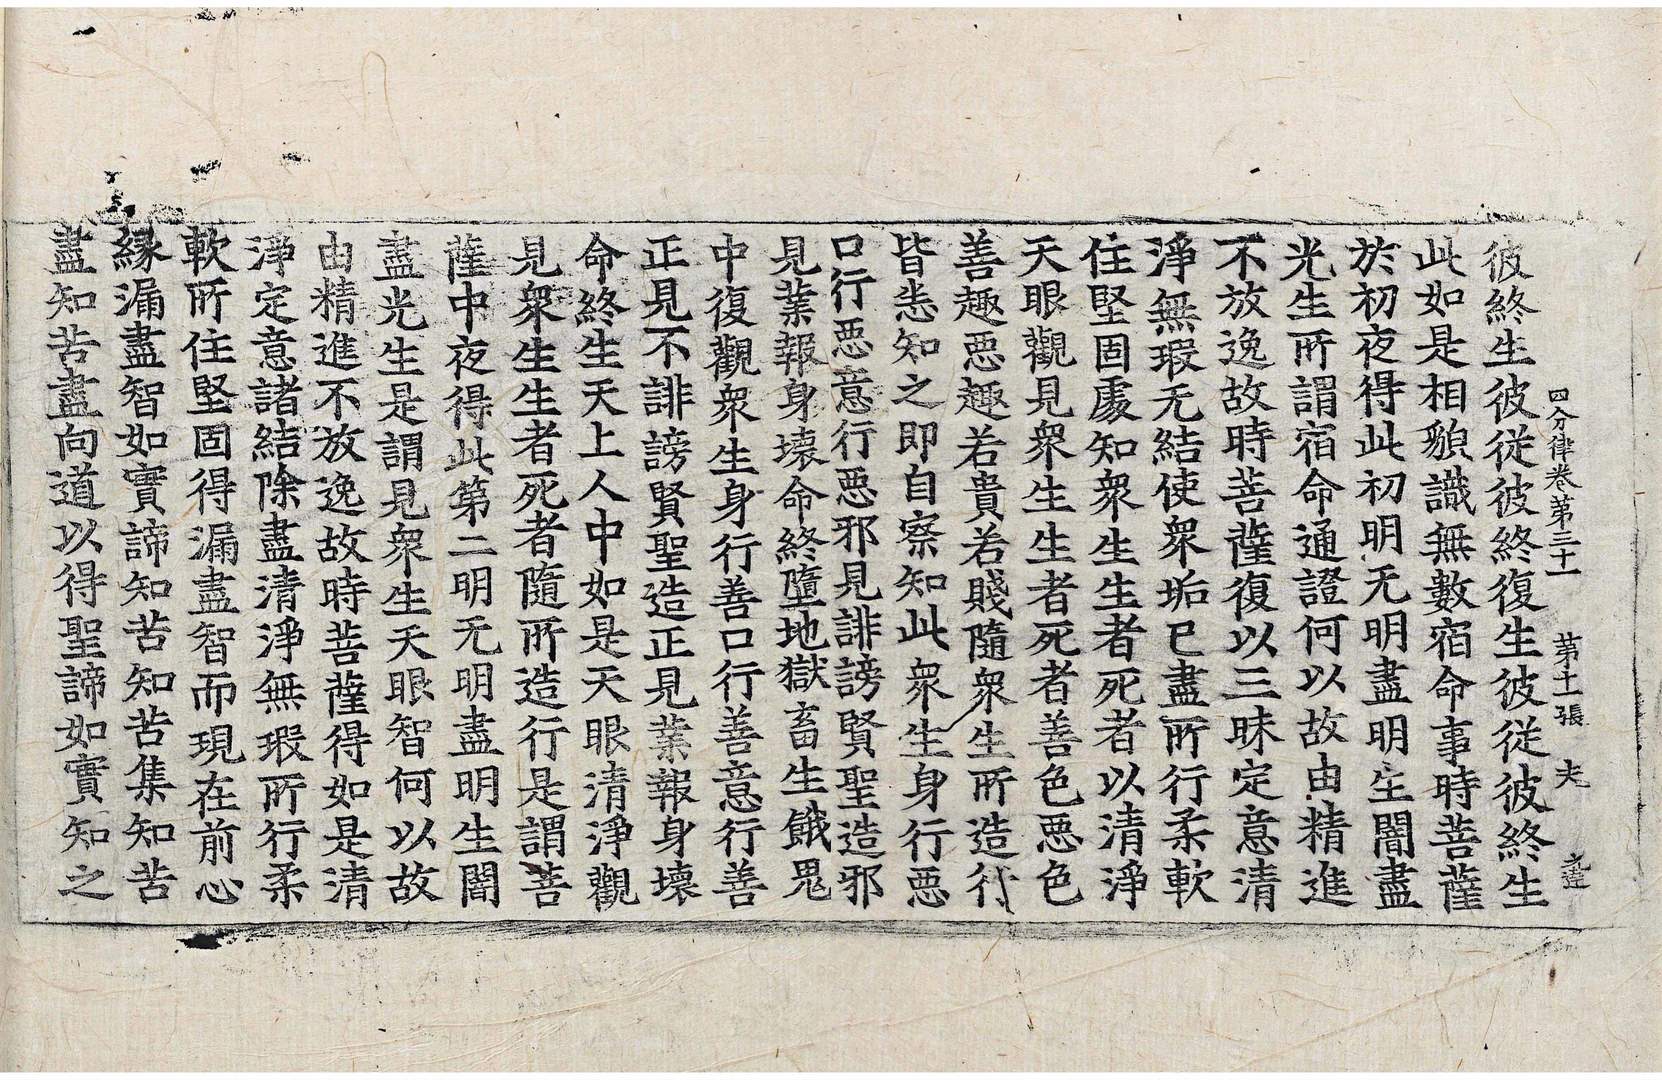 四分律卷第三十一 第十二張 夫
彼終生彼從彼終復生彼從彼終生
此如是相貌識無數宿命事時菩薩
於初夜得此初明无明盡明生闇盡
光生所謂宿命通證何以故由精進
不放逸故時菩薩復以三昧定意清
淨無瑕无結使衆垢已盡所行柔軟
住堅固處知衆生生者死者以清淨
天眼觀見衆生生者死者善色惡色
善趣惡趣若貴若賤隨衆生所造行
皆悉知之即自察知此衆生身行惡
口行惡意行惡邪見誹謗賢聖造邪
見業報身壞命終墮地獄畜生餓鬼
中復觀衆生身行善口行善意行善
正見不誹謗賢聖造正見業報身壞
命終生天上人中如是天眼清淨觀
見衆生生者死者隨所造行是謂菩
薩中夜得此第二明无明盡明生闇
盡光生是謂見衆生天眼智何以故
由精進不放逸故時菩薩得如是清
淨定意諸結除盡清淨無瑕所行柔
軟所住堅固得漏盡智而現在前心
緣漏盡智如實諦知苦知苦集知苦
盡知苦盡向道以得聖諦如實知之